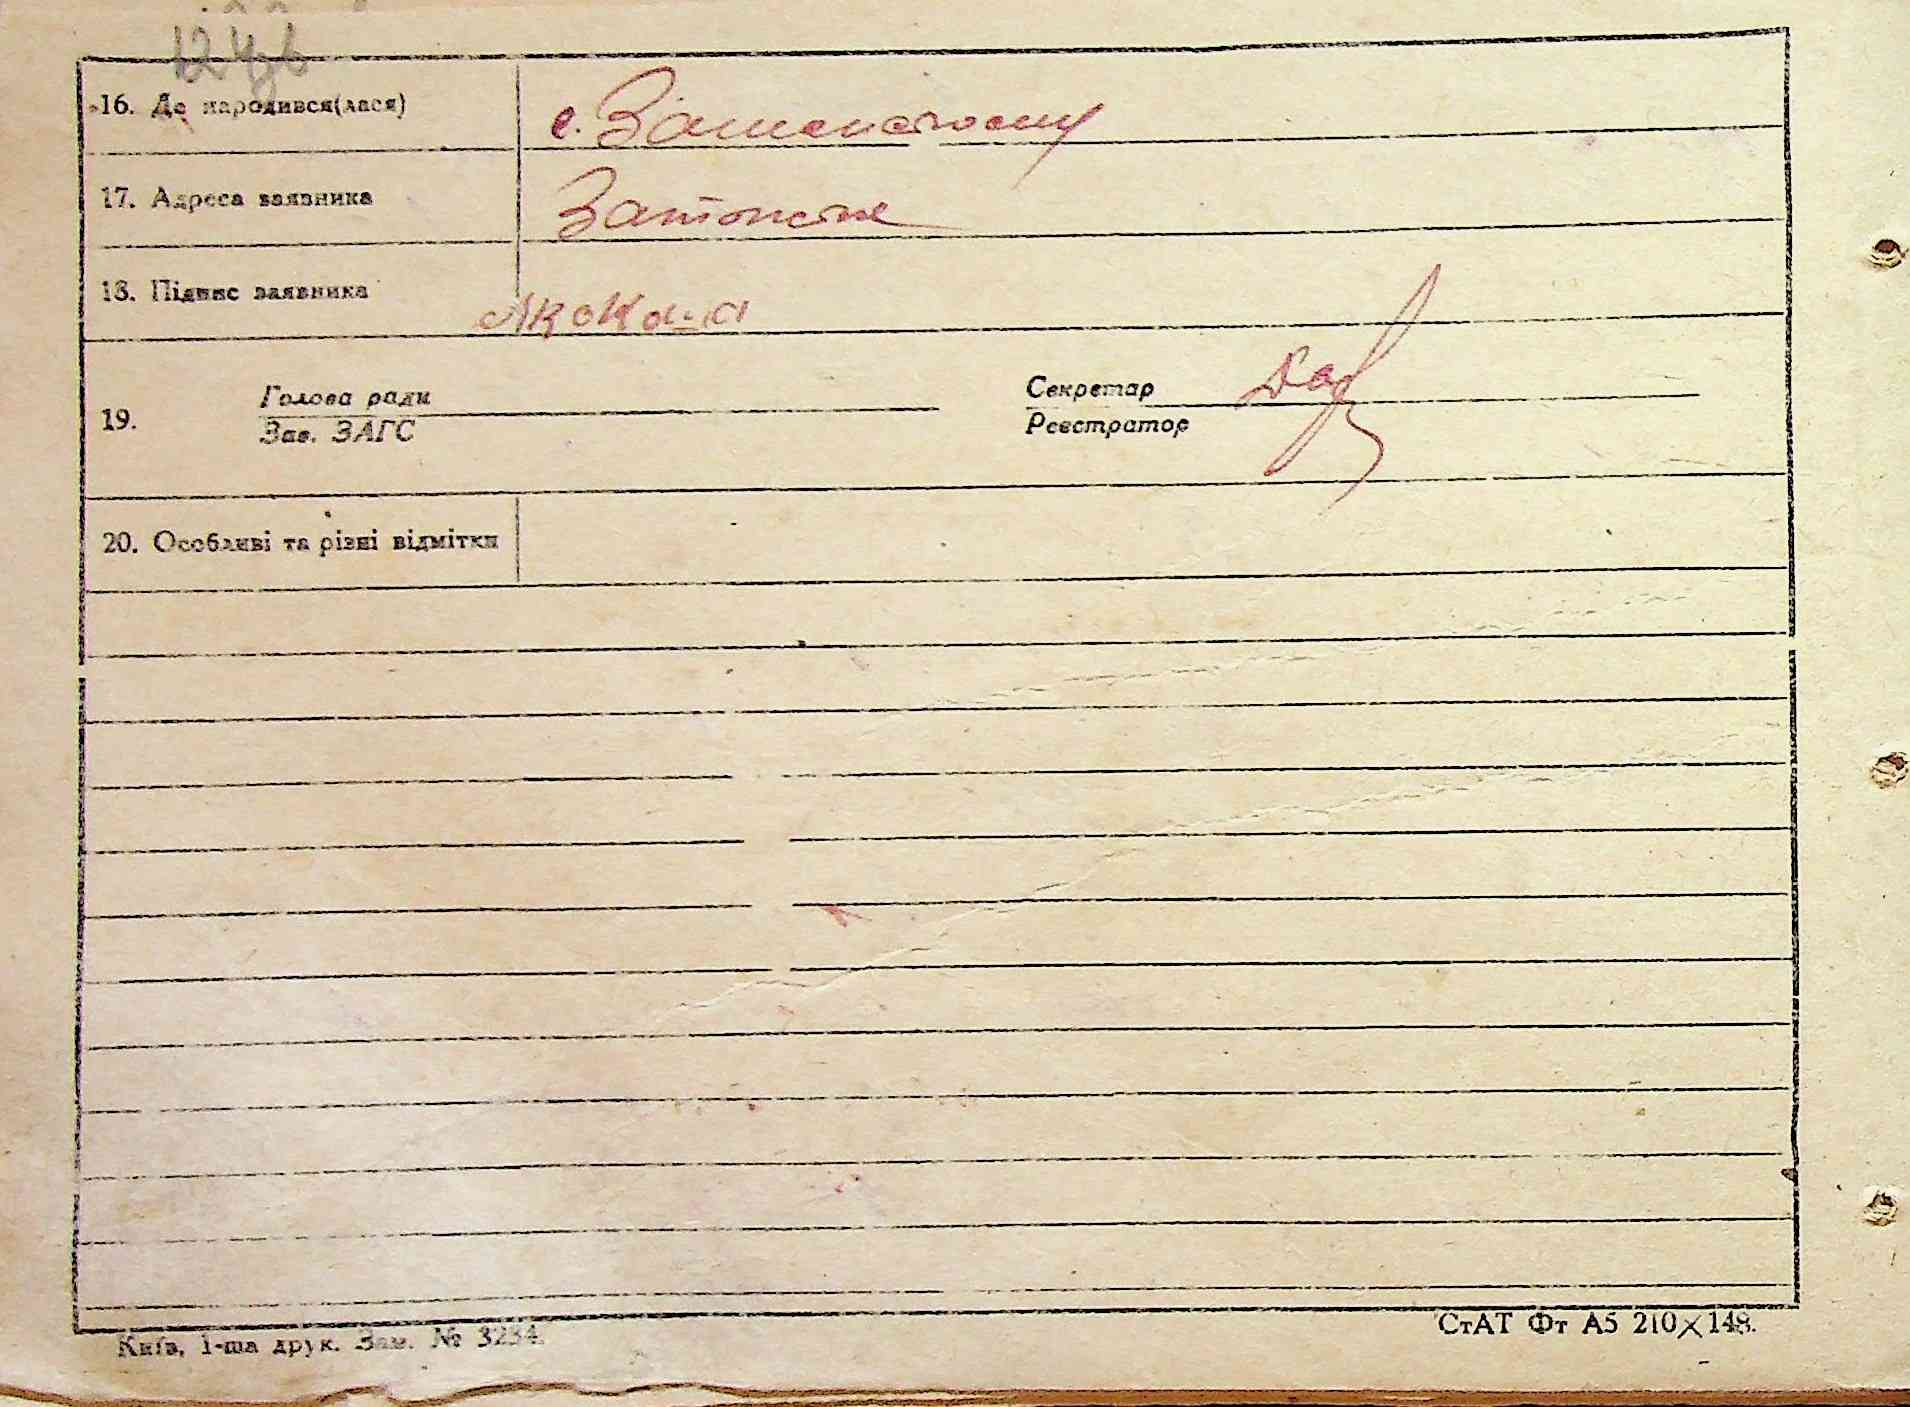 16. Де народився(лася) с. Затонському
17. Адреса заявника Затонське
18. Підпис заявника
Голова ради Секретар
19.
Зав. ЗАГС Реєстратор
20. Особливі та різні відмітки
Київ, 1-ша друк. Зам. № 3234. СтАТ Фт А5 210×148.